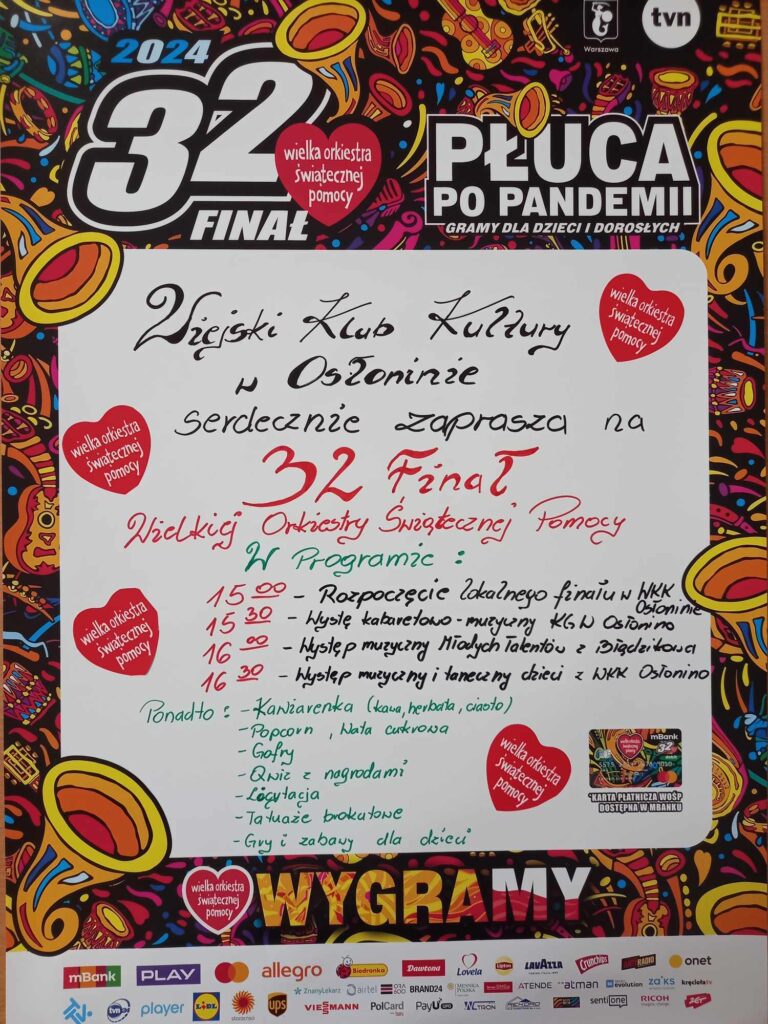 2024
32
FINAŁ
wielka orkiestra
świątecznej
pomocy
Warszawa
tvn
PŁUCA
PO PANDEMII
GRAMY DLA DZIECI I DOROSŁYCH
Wiejski Klub Kultury
w Osłoninie
serdecznie zaprasza na
32 Finał
Wielkiej Orkiestry Świątecznej Pomocy
W Programie :
15 00 - Rozpoczęcie lokalnego finału w WKK Osłoninie
15 30 - Wystę kabaretowo-muzyczny KGW Osłonino
16 00 - Występ muzyczny Młodych Talentów z Błądzikowa
16 30 - Występ muzyczny i taneczny dzieci z WKK Osłonino
Ponadto : - Kawiarenka (kawa, herbata, ciasto)
- Popcorn , Wata cukrowa
- Gofry
- Qwiz z nagrodami
- Licytacja
- Tatuaże brokatowe
- Gry i zabawy dla dzieci
wielka orkiestra
świątecznej
pomocy
wielka orkiestra
świątecznej
pomocy
wielka orkiestra
świątecznej
pomocy
wielka orkiestra
świątecznej
pomocy
mBank
32
*KARTA PŁATNICZA WOŚP
DOSTĘPNA W MBANKU
wielka orkiestra
świątecznej
pomocy
WYGRAMY
mBank PLAY allegro Biedronka Dawtona Lovela Lipton LAVAZZA Crunchips RADIO onet
ZnanyLekarz airtel ORA 600 BRAND24 MENNICA POLSKA ATENDE atman evolution ZAiKS kręcioła tv
tvn player LIDL ups VIESMANN PolCard PayU sentione RICOH zer